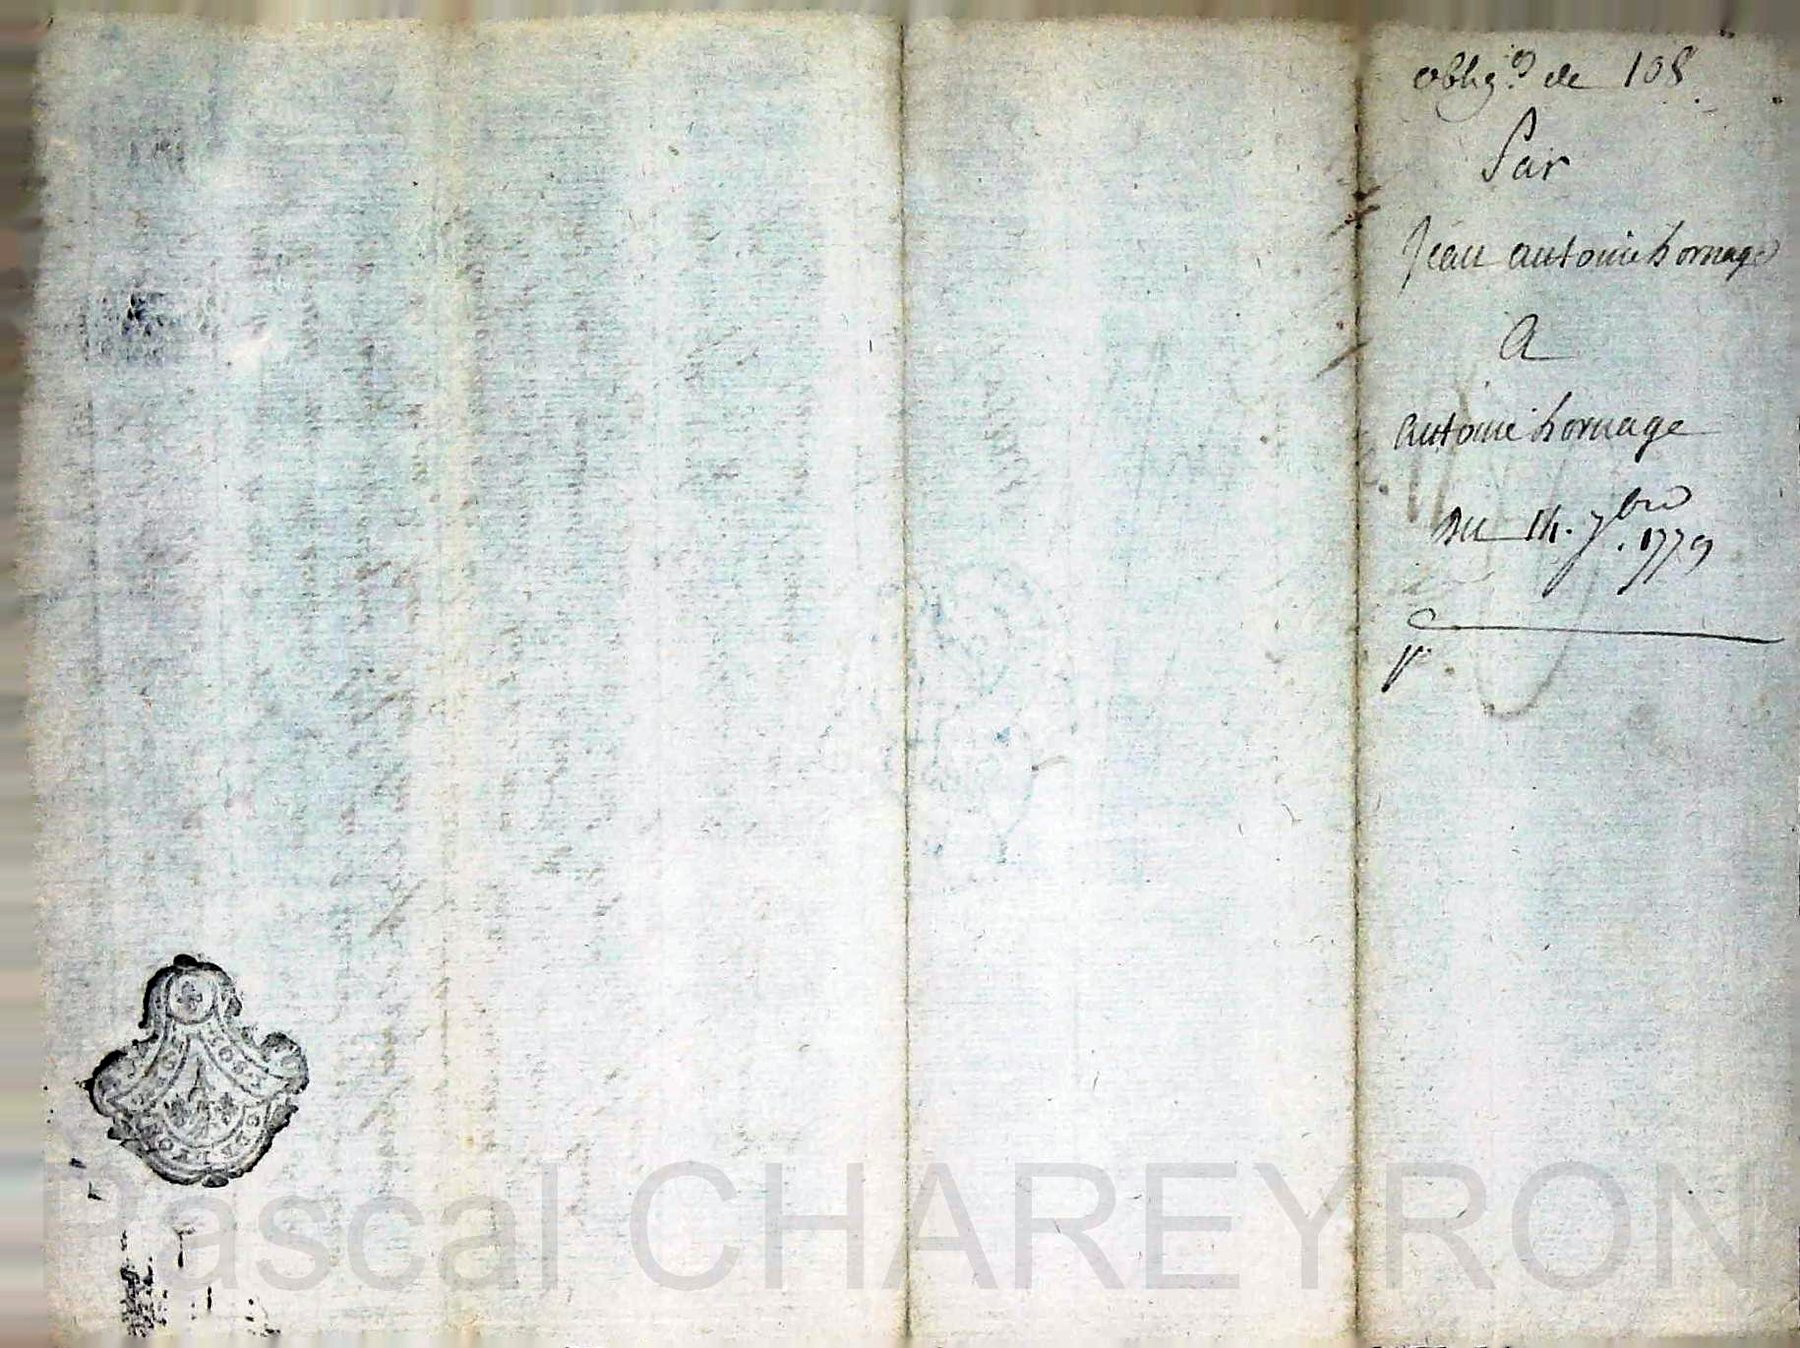 oblig.on de 108
Par
Jean antoine hornage
A
antoine hornage
Du 14. 7bre. 1779
Pascal CHAREYRON